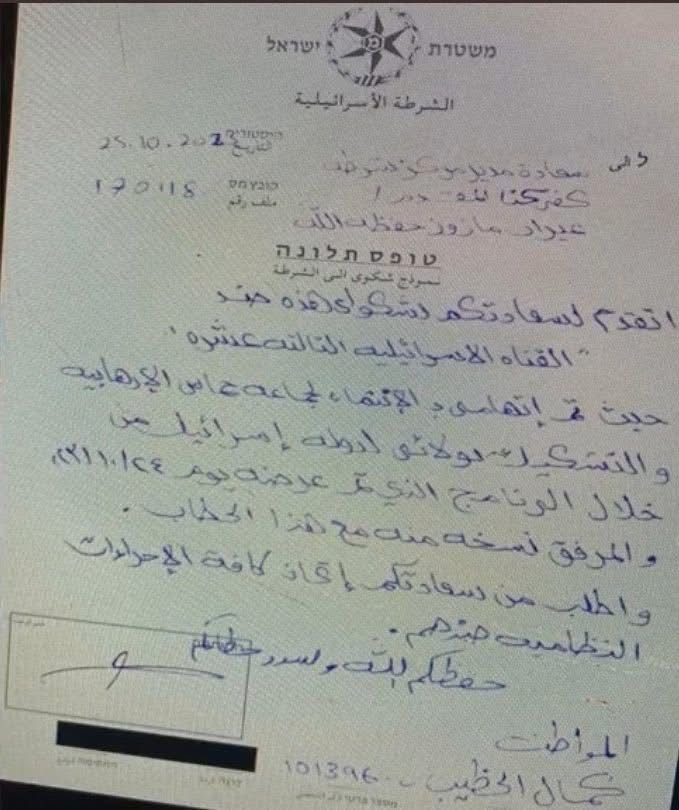 משטרת ישראל
الشرطة الأسرائيلية
היסטוריה
التاريخ 25.10.202
לכי الى
سعادة مدير مركز شرطة
170118 ملف رقم
كفركنا
حفظه الله
טופס תלונה
نموذج شكوى الى الشرطة
اتقدم لسعادتكم بشكواي هذه ضد
"القناه الاسرائيليه الثالثه عشره"
حيث تم إتهامي بـ الإنتماء لجماعة حماس الإرهابية
والتشكيك بولائي لدولة إسرائيل من
خلال البرنامج الذي تم عرضه يوم
والمرفق نسخه منه مع هذا الخطاب.
واطلب من سعادتكم إتخاذ كافة الإجراءات
النظاميه ضدهم.
حفظكم الله وسدد خطاكم
المواطن
كمال الخطيب
101396